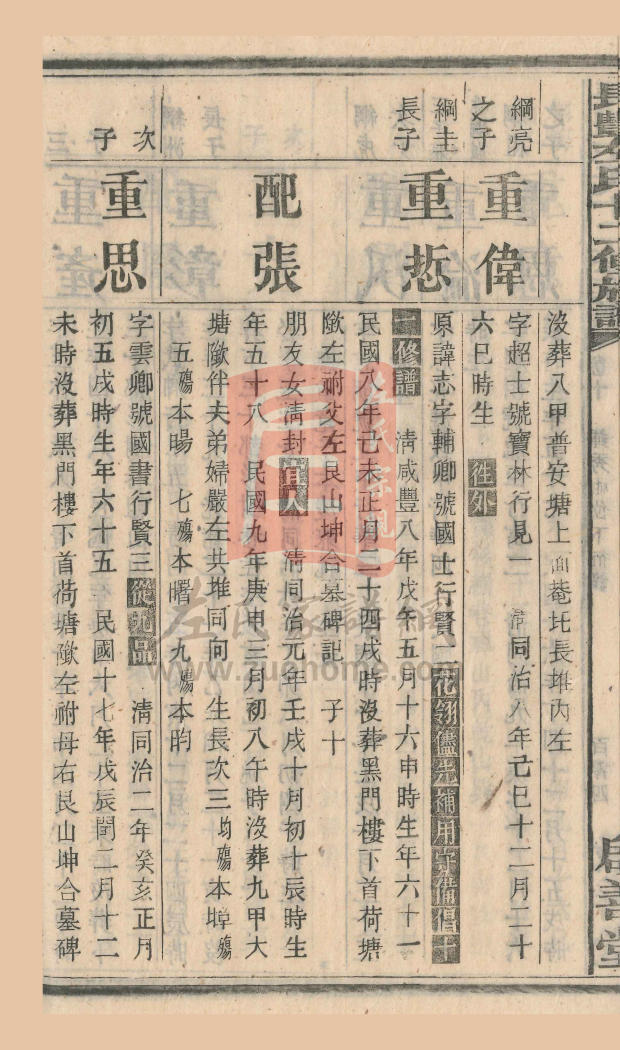 長豐左氏十二修族譜
啟善堂
沒葬八甲普安塘上面菴圫長堆內左
綱亮之子
重偉
字超士號寶林行見一 清同治八年己巳十二月二十
六巳時生 往外
綱圭長子
重悊
原諱志字輔卿號國士行賢二花翎儘先補用守備倡
二修譜 清咸豐八年戊午五月十六申時生年六十一
民國八年己未正月二十四戌時沒葬黑門樓下首荷塘
墈左祔父左艮山坤合墓碑記 子十
配張
朋友女清封宜人 清同治元年壬戌十月初十辰時生
年五十八 民國九年庚申三月初八午時沒葬九甲大
塘墈伴夫弟婦嚴左共堆同向 生長次三均殤本埻殤
五殤本暘 七殤本曙 九殤本昀
次子
重思
字雲卿號國書行賢三從九品 清同治二年癸亥正月
初五戌時生年六十五 民國十七年戊辰閏二月十二
未時沒葬黑門樓下首荷塘墈左祔母右艮山坤合墓碑
左氏家譜網
www.zuohome.com